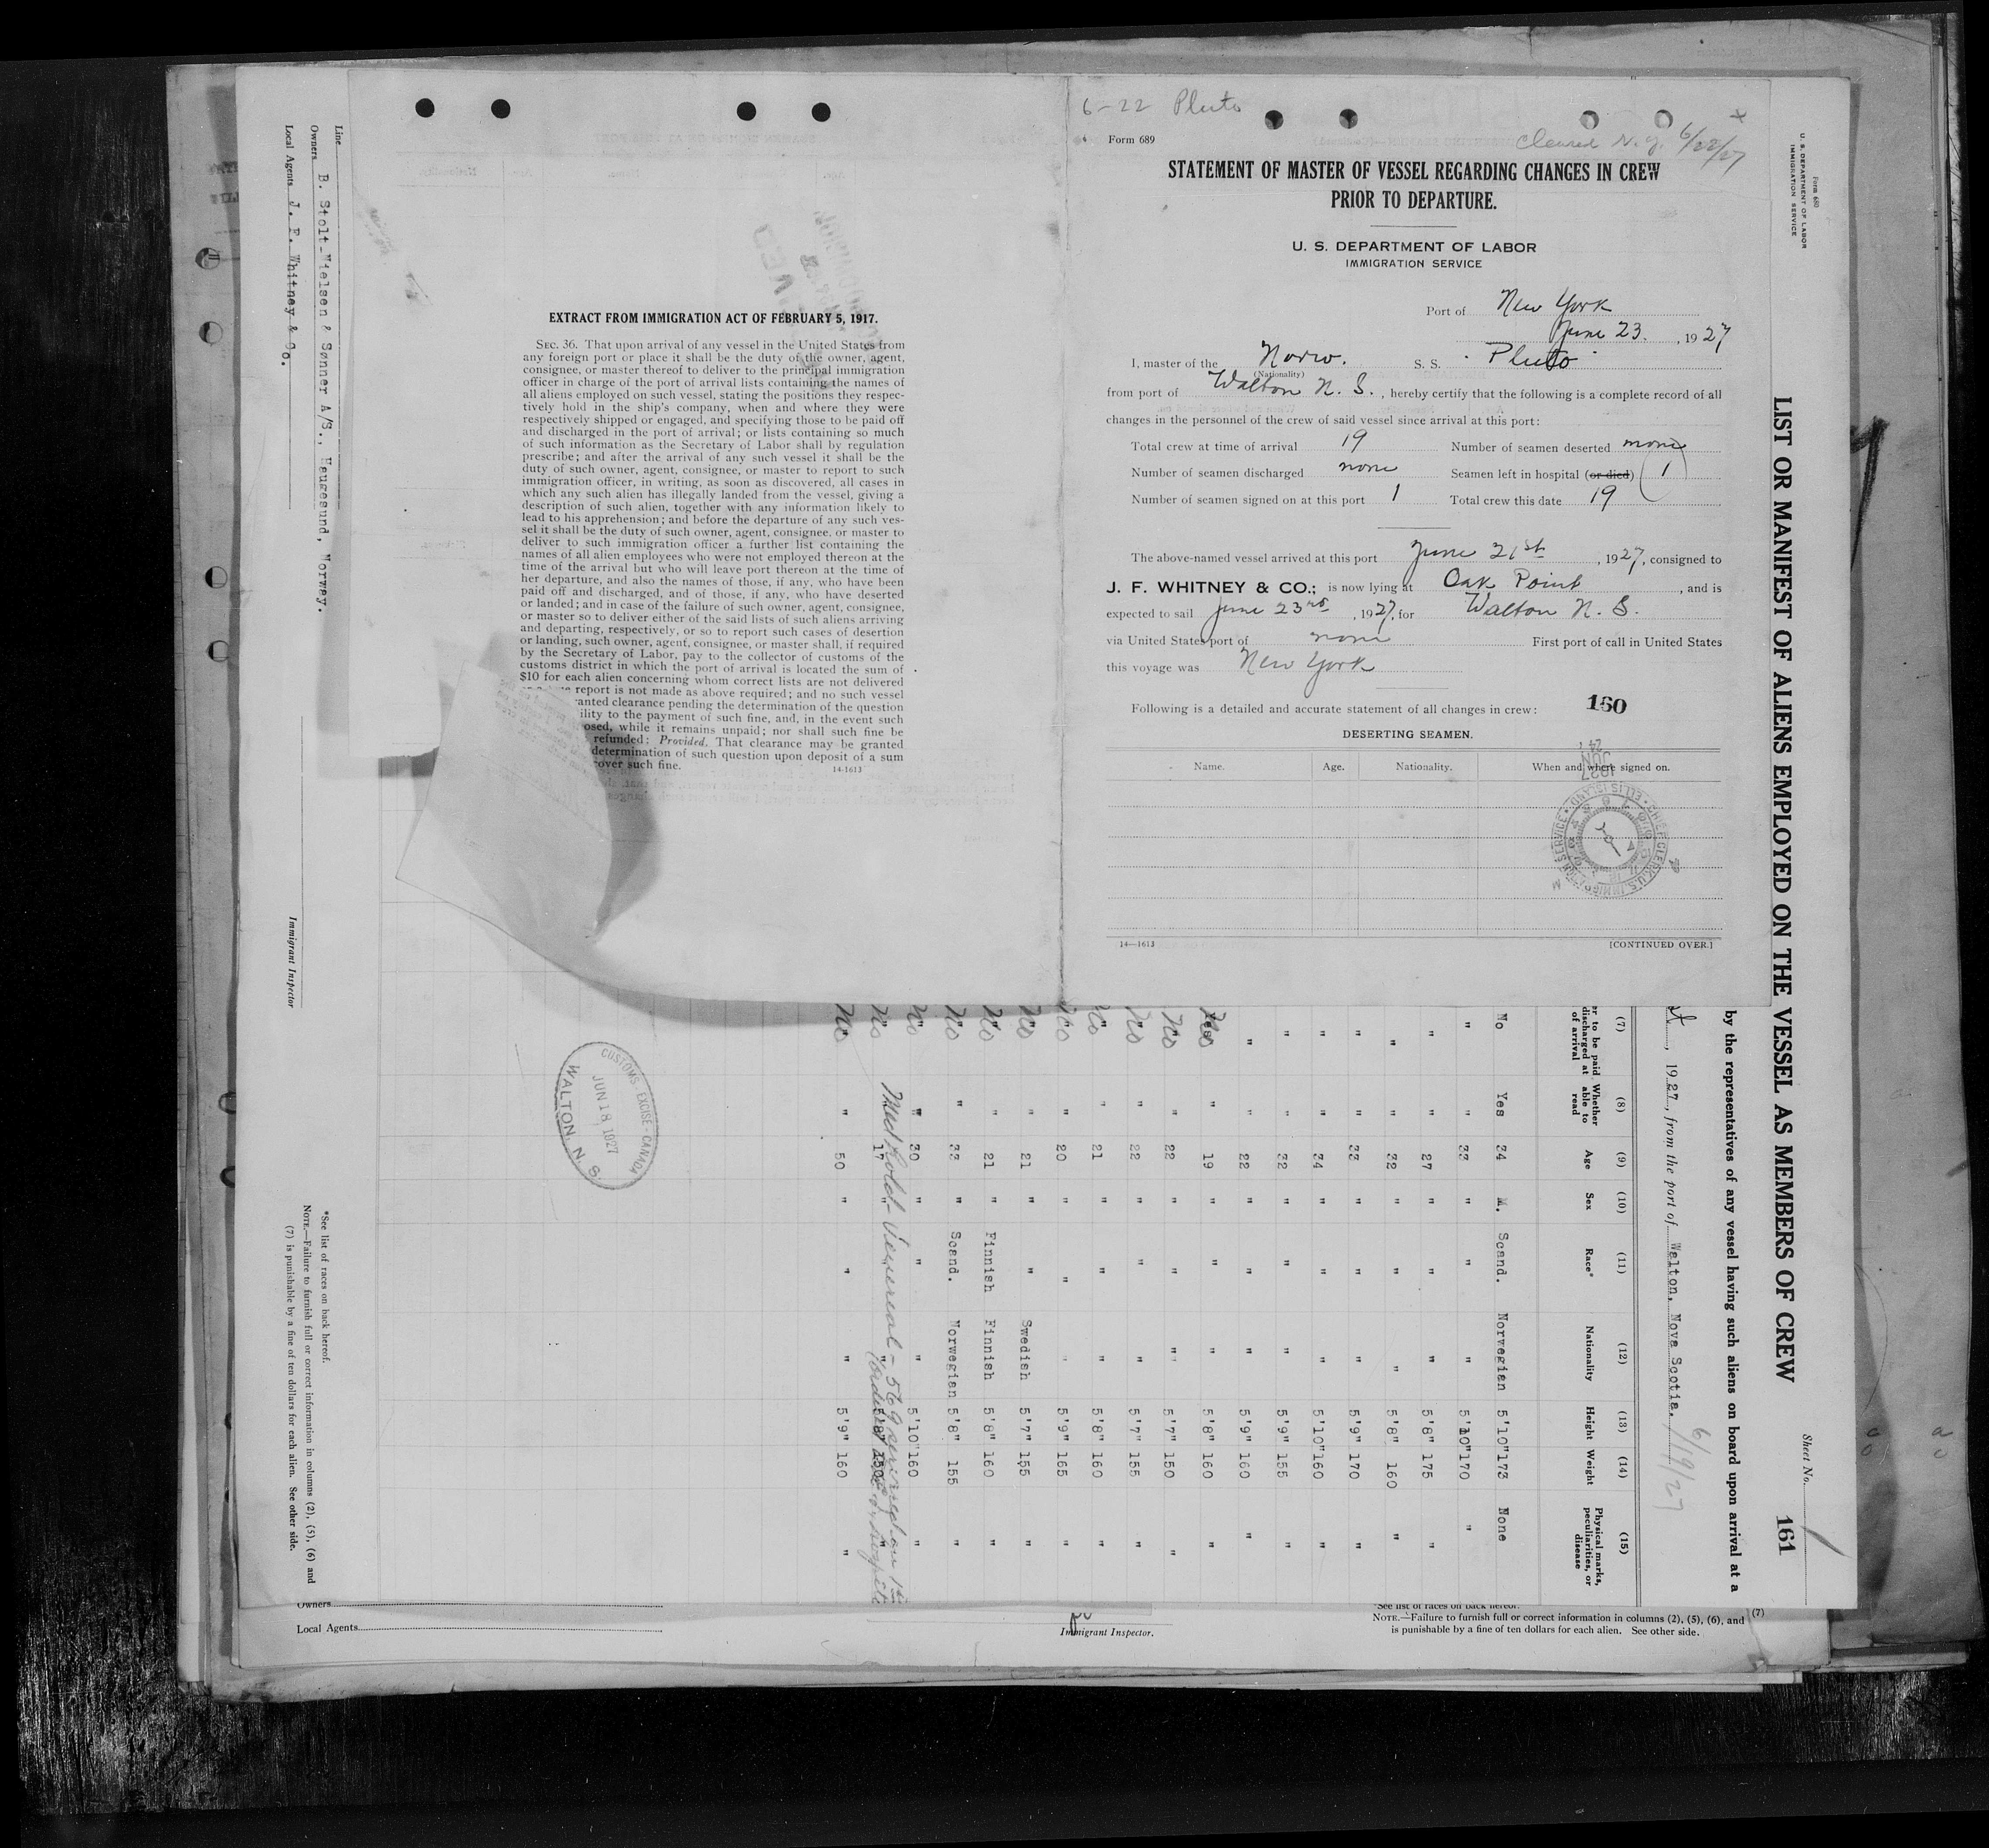 6-22 Pluto
Cleared N.Y. 6/22/27
Form 689
STATEMENT OF MASTER OF VESSEL REGARDING CHANGES IN CREW
PRIOR TO DEPARTURE.
U. S. DEPARTMENT OF LABOR
IMMIGRATION SERVICE
Port of New York
June 23. , 1927
I, master of the Norw. S. S. Pluto
(Nationality)
from port of Walton N. S. , hereby certify that the following is a complete record of all
changes in the personnel of the crew of said vessel since arrival at this port:
Total crew at time of arrival 19 Number of seamen deserted none
Number of seamen discharged none Seamen left in hospital (or died) (1)
Number of seamen signed on at this port 1 Total crew this date 19
The above-named vessel arrived at this port June 21st , 1927, consigned to
J. F. WHITNEY & CO.; is now lying at Oak Point , and is
expected to sail June 23rd , 1927, for Walton N. S.
via United States port of none First port of call in United States
this voyage was New York
Following is a detailed and accurate statement of all changes in crew: 160
DESERTING SEAMEN.
Name. Age. Nationality. When and where signed on.
1927 JUN 24
CHIEF CLERK, U.S. IMMIGRATION SERVICE ELLIS ISLAND
14—1613 [CONTINUED OVER.]
EXTRACT FROM IMMIGRATION ACT OF FEBRUARY 5, 1917.
SEC. 36. That upon arrival of any vessel in the United States from
any foreign port or place it shall be the duty of the owner, agent,
consignee, or master thereof to deliver to the principal immigration
officer in charge of the port of arrival lists containing the names of
all aliens employed on such vessel, stating the positions they respec-
tively hold in the ship's company, when and where they were
respectively shipped or engaged, and specifying those to be paid off
and discharged in the port of arrival; or lists containing so much
of such information as the Secretary of Labor shall by regulation
prescribe; and after the arrival of any such vessel it shall be the
duty of such owner, agent, consignee, or master to report to such
immigration officer, in writing, as soon as discovered, all cases in
which any such alien has illegally landed from the vessel, giving a
description of such alien, together with any information likely to
lead to his apprehension; and before the departure of any such ves-
sel it shall be the duty of such owner, agent, consignee, or master to
deliver to such immigration officer a further list containing the
names of all alien employees who were not employed thereon at the
time of the arrival but who will leave port thereon at the time of
her departure, and also the names of those, if any, who have been
paid off and discharged, and of those, if any, who have deserted
or landed; and in case of the failure of such owner, agent, consignee,
or master so to deliver either of the said lists of such aliens arriving
and departing, respectively, or so to report such cases of desertion
or landing, such owner, agent, consignee, or master shall, if required
by the Secretary of Labor, pay to the collector of customs of the
customs district in which the port of arrival is located the sum of
$10 for each alien concerning whom correct lists are not delivered
report is not made as above required; and no such vessel
anted clearance pending the determination of the question
ility to the payment of such fine, and, in the event such
osed, while it remains unpaid; nor shall such fine be
refunded: Provided, That clearance may be granted
determination of such question upon deposit of a sum
cover such fine.
14-1613
Form 680
U. S. DEPARTMENT OF LABOR
IMMIGRATION SERVICE
Sheet No.
LIST OR MANIFEST OF ALIENS EMPLOYED ON THE VESSEL AS MEMBERS OF CREW 161
by the representatives of any vessel having such aliens on board upon arrival at a
, 1927, from the port of Walton, Nova Scotia. 6/19/27
(7) (8) (9) (10) (11) (12) (13) (14) (15)
or to be paid discharged at of arrival Whether able to read Age Sex Race* Nationality Height Weight Physical marks, peculiarities, or disease
No Yes 34 M. Scand. Norwegian 5'10" 173 None
" " 33 " " " 5'10" 170 "
" " 27 " " " 5'8" 175 "
" " 32 " " " 5'8" 160 "
" " 33 " " " 5'9" 170 "
" " 34 " " " 5'10" 160 "
" " 32 " " " 5'9" 155 "
" " 22 " " " 5'9" 160 "
No " 19 " " " 5'8" 160 "
No " 22 " " " 5'7" 150 "
No " 22 " " " 5'7" 155 "
No " 21 " " " 5'8" 160 "
No " 20 " " " 5'9" 165 "
No " 21 " " Swedish 5'7" 155 "
No " 21 " Finnish Finnish 5'8" 160 "
No " 33 " Scand. Norwegian 5'8" 155 "
No " 30 " " " 5'10" 160 "
No " 17 " " " 5'8" 150 "
Med hold - Venereal - 569
No " 50 " " " 5'9" 160 "
CUSTOMS-EXCISE-CANADA
JUN 18 1927
WALTON, N. S.
Line
Owners B. Stolt-Nielsen & Sønner A/S., Haugesund, Norway.
Local Agents J. F. Whitney & Co.
Immigrant Inspector
*See list of races on back hereof.
NOTE.—Failure to furnish full or correct information in columns (2), (5), (6) and
(7) is punishable by a fine of ten dollars for each alien. See other side.
Owners
Local Agents
Immigrant Inspector.
*See list of races on back hereof.
NOTE.—Failure to furnish full or correct information in columns (2), (5), (6), and (7)
is punishable by a fine of ten dollars for each alien. See other side.